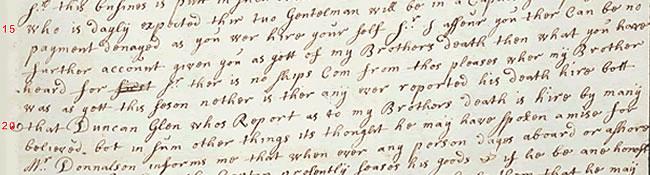 Sr. this busines is put in
15 who is dayly expected thir two Gentelman will be in a
payment denayed as you wer hire your self Sr. I assure you ther Can be no
further account given you as yett of my Brothers death then what you have
heard for Sr ther is no ships Com from thos pleases wher my Brother
was as yett this seson nether is ther any wer reported his death hire bott
20 that Duncan Glen whos Report as to my Brothers death is hire by many
believed. bot in sum other things its thought he may have spoken amise for
Mr. Donnalson informs me that when ever any person dayes aboard or ashore
presently seases his goods & if he be ane honest
them that he may